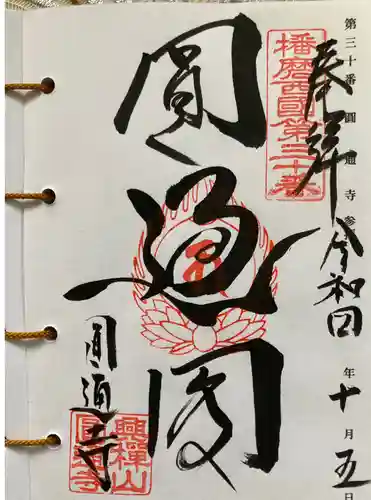 第三十番 圓通寺参 令和四年十月五日
奉拝
播磨西國第三十番
圓通閣
圓通寺
興禅山
圓通寺